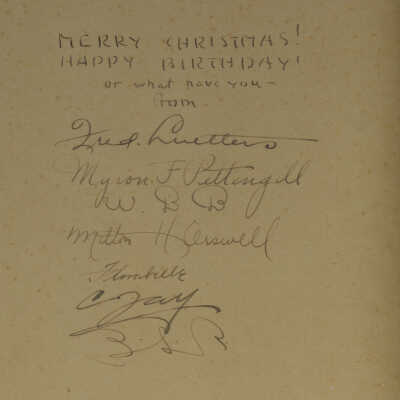 MERRY CHRISTMAS!
HAPPY BIRTHDAY!
or what have you —
from.
Fred. Luetters
Myron. F. Pettengill
W. B B
Milton H
Florabelle
C Jay